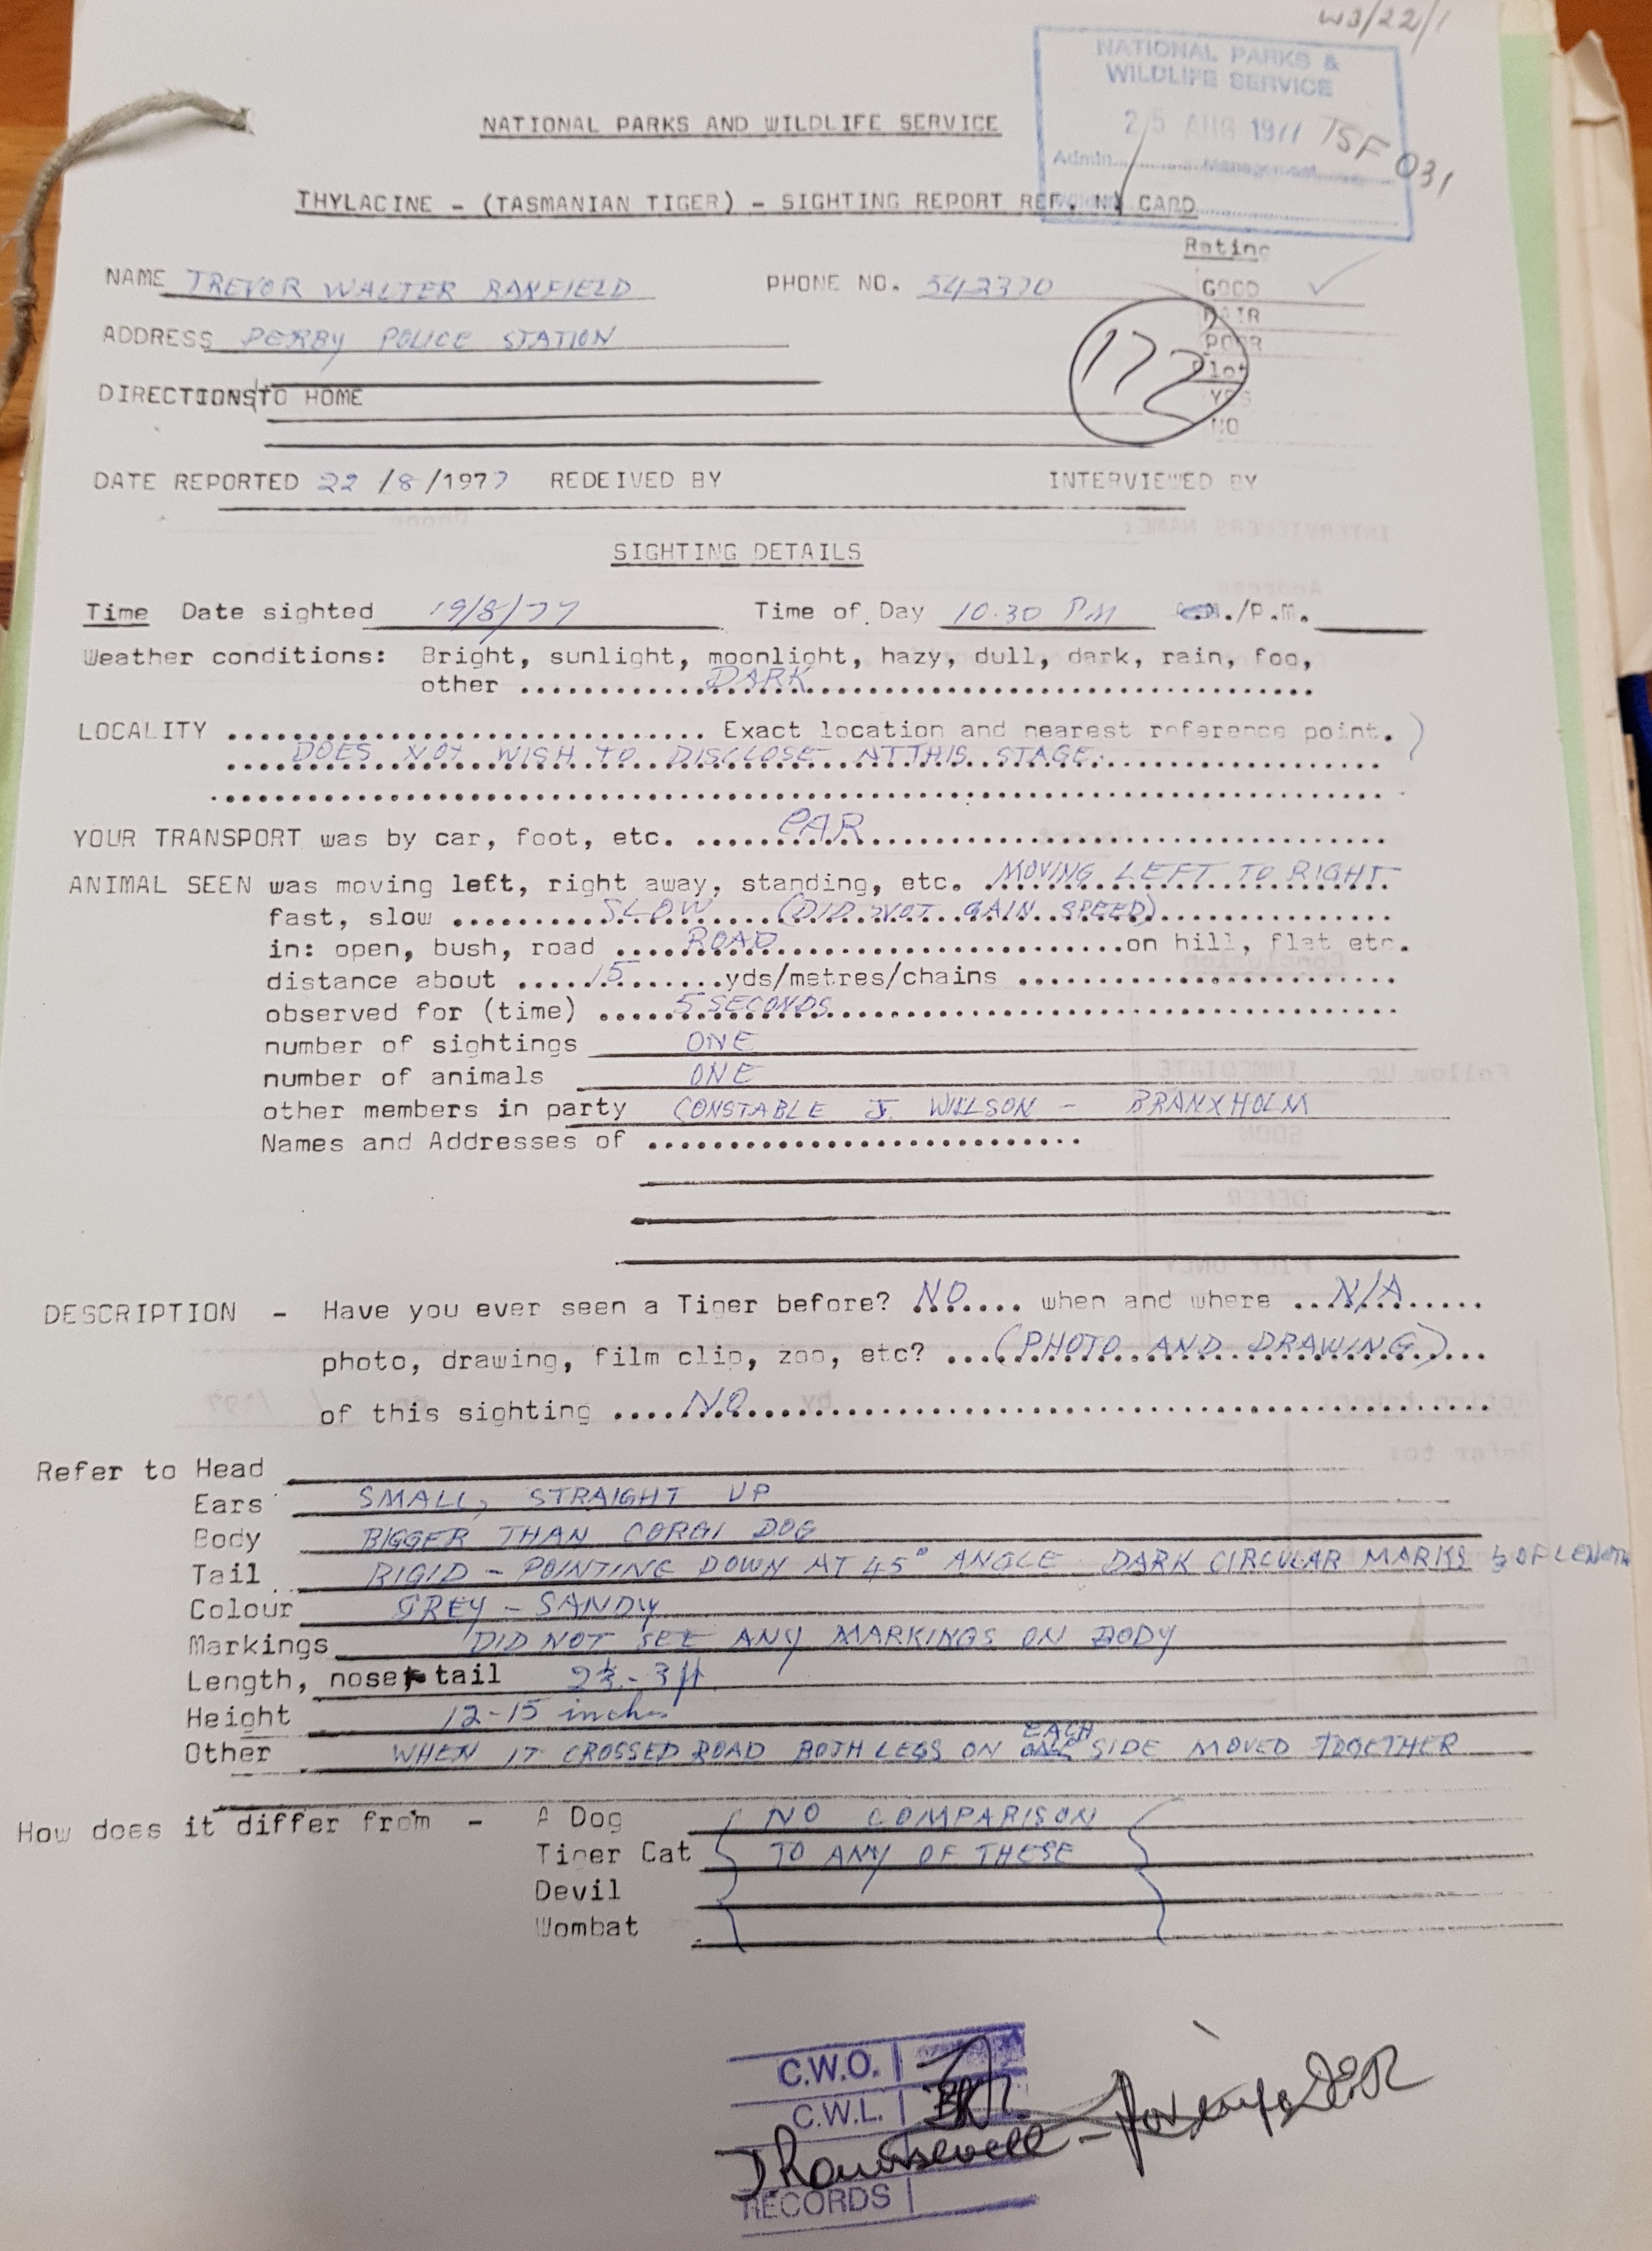 W3/22/1
NATIONAL PARKS &
WILDLIFE SERVICE
25 AUG 1977 TSF 031
Admin. Management
NATIONAL PARKS AND WILDLIFE SERVICE
THYLACINE - (TASMANIAN TIGER) - SIGHTING REPORT REF. CARD
Rating
NAME TREVOR WALTER BANFIELD PHONE NO. 542370 GOOD ✓
FAIR
ADDRESS DERBY POLICE STATION POOR
172 Plot
DIRECTIONS TO HOME YES
NO
DATE REPORTED 22/8/1977 REDEIVED BY INTERVIEWED BY
SIGHTING DETAILS
Time Date sighted 19/8/77 Time of Day 10.30 PM a.m./p.m.
Weather conditions: Bright, sunlight, moonlight, hazy, dull, dark, rain, foo,
other DARK
LOCALITY Exact location and nearest reference point.)
DOES NOT WISH TO DISCLOSE AT THIS STAGE.
YOUR TRANSPORT was by car, foot, etc. CAR
ANIMAL SEEN was moving left, right away, standing, etc. MOVING LEFT TO RIGHT
fast, slow SLOW (DID NOT GAIN SPEED)
in: open, bush, road ROAD on hill, flat etc.
distance about 15 yds/metres/chains
observed for (time) 5 SECONDS
number of sightings ONE
number of animals ONE
other members in party CONSTABLE J. WILSON - BRANXHOLM
Names and Addresses of
DESCRIPTION - Have you ever seen a Tiger before? NO when and where N/A
photo, drawing, film clip, zoo, etc? (PHOTO AND DRAWING)
of this sighting NO
Refer to Head
Ears SMALL, STRAIGHT UP
Body BIGGER THAN CORGI DOG
Tail RIGID - POINTING DOWN AT 45° ANGLE DARK CIRCULAR MARKS OF LENGTH
Colour GREY - SANDY
Markings DID NOT SEE ANY MARKINGS ON BODY
Length, nose tail 2½ - 3 ft
Height 12-15 inches
Other WHEN IT CROSSED ROAD BOTH LEGS ON EACH SIDE MOVED TOGETHER
How does it differ from - A Dog NO COMPARISON
Tiger Cat TO ANY OF THESE
Devil
Wombat
C.W.O.
C.W.L.
RECORDS